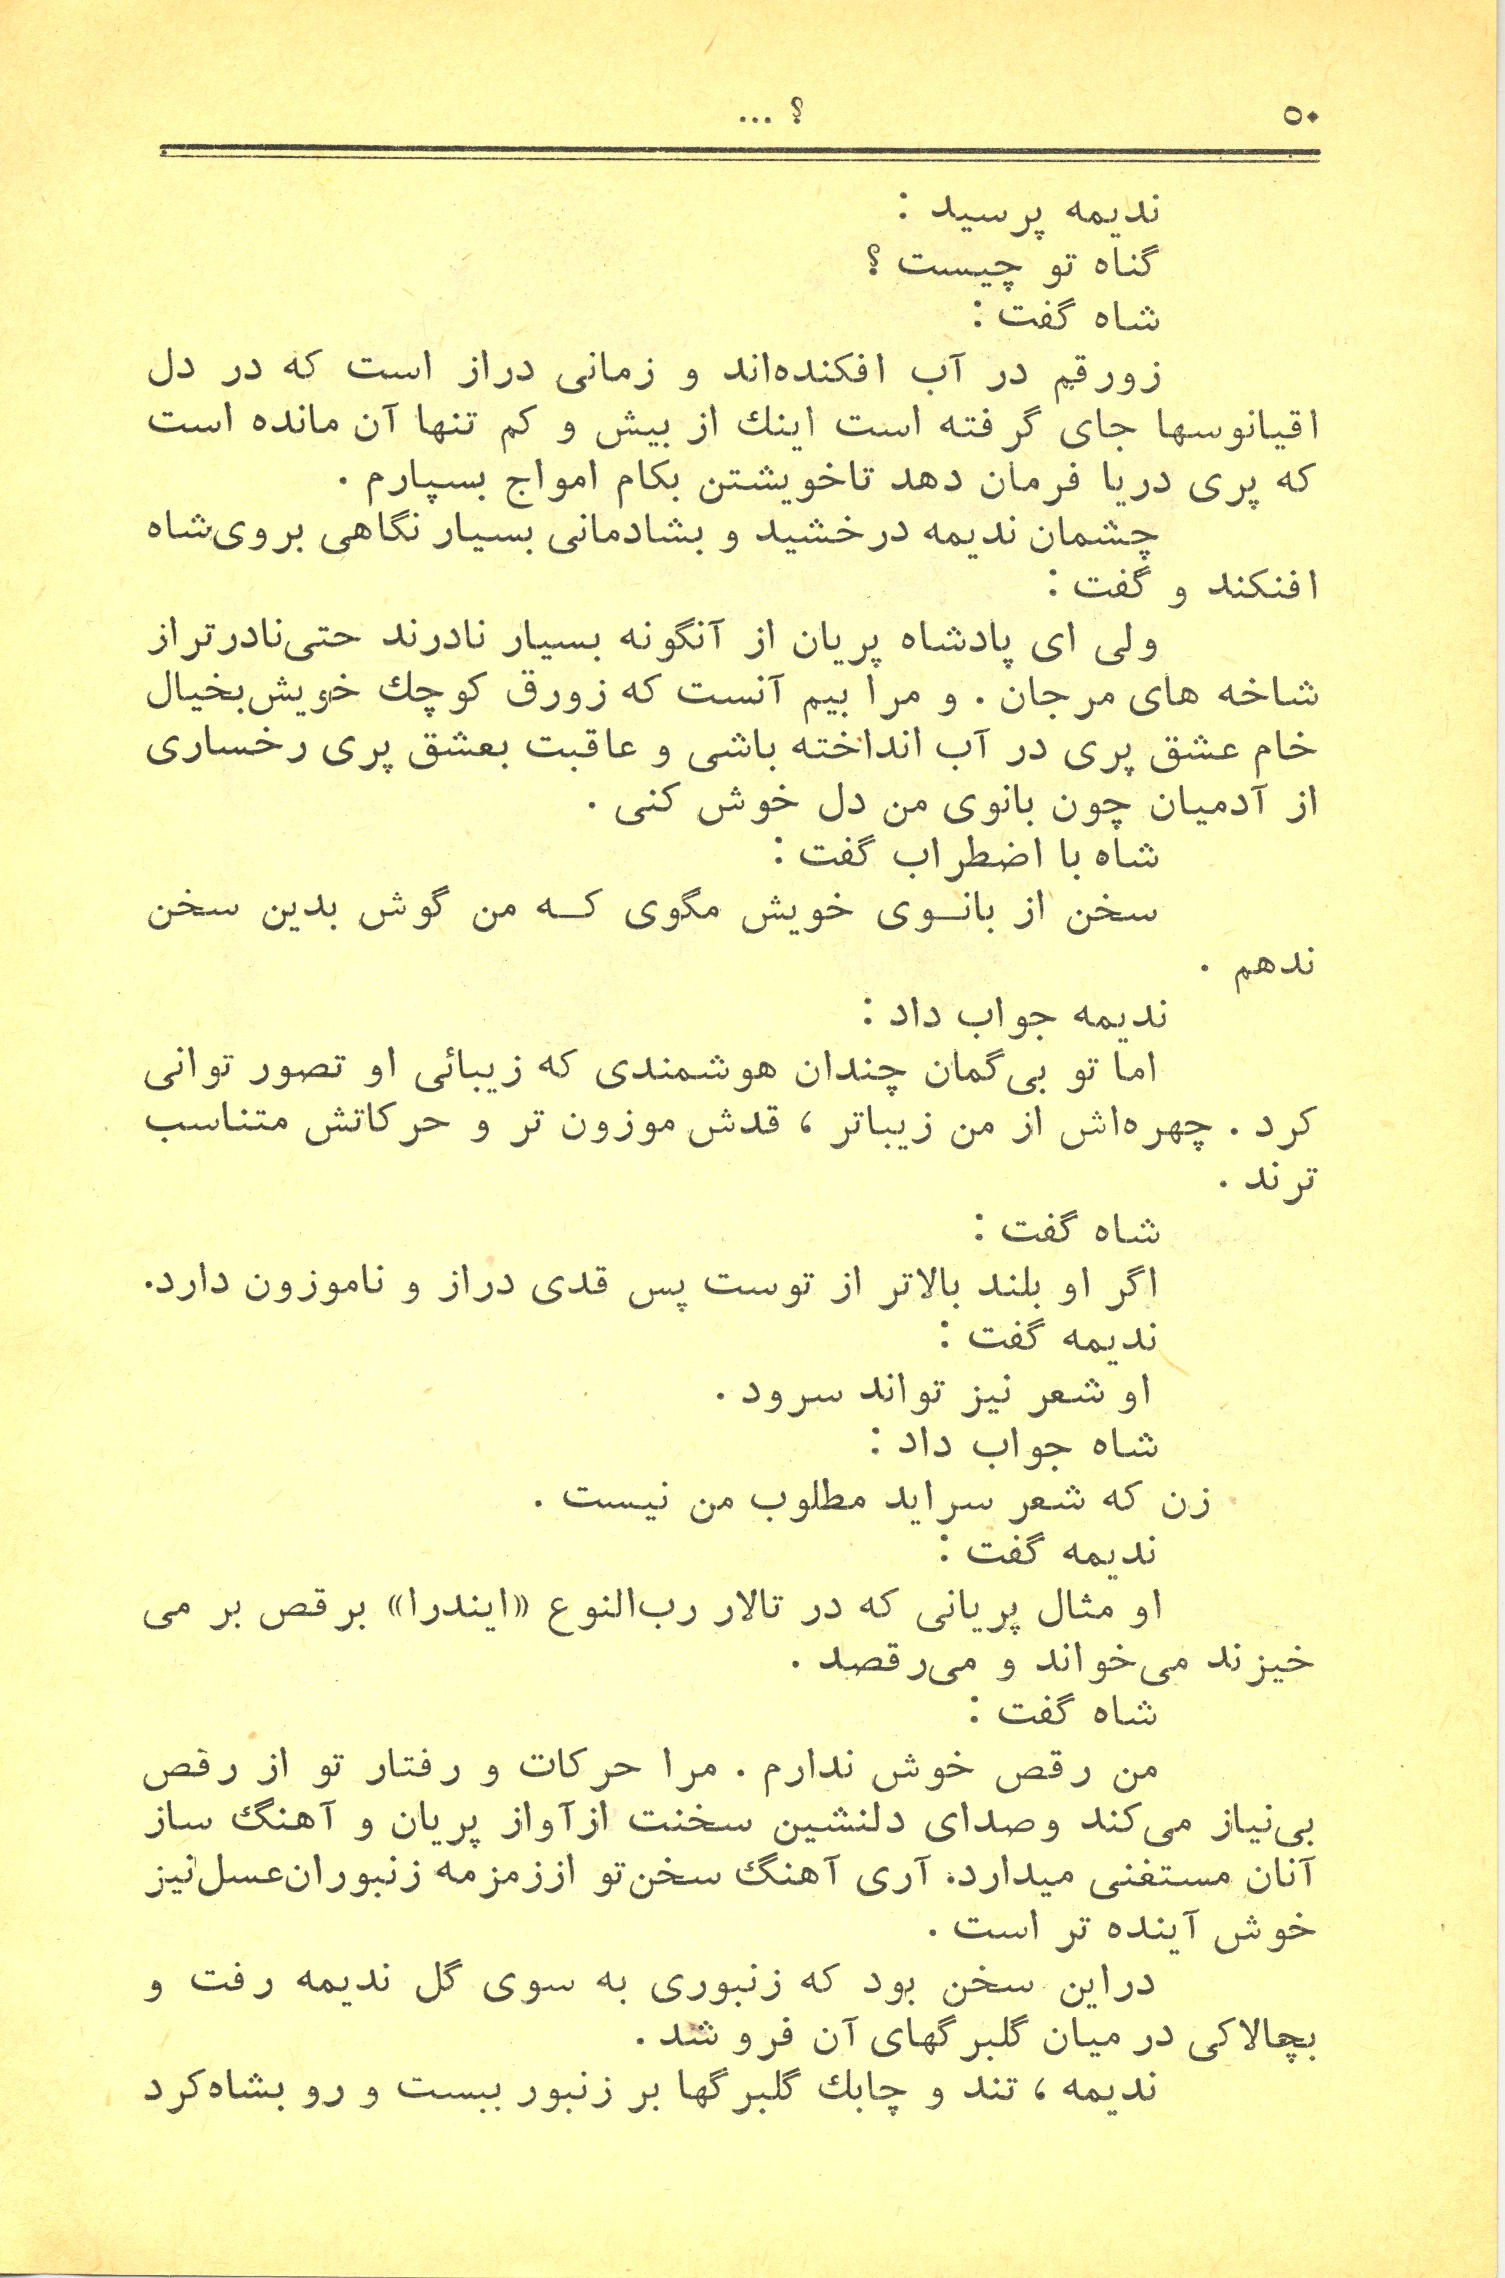 ۵۰
؟ ...
ندیمه پرسید :
گناه تو چیست ؟
شاه گفت :
زورقم در آب افکنده‌اند و زمانی دراز است که در دل
اقیانوسها جای گرفته است اینك از بیش و کم تنها آن مانده است
که پری دریا فرمان دهد تاخویشتن بکام امواج بسپارم .
چشمان ندیمه درخشید و بشادمانی بسیار نگاهی بروی‌شاه
افنکند و گفت :
ولی ای پادشاه پریان از آنگونه بسیار نادرند حتی‌نادرتراز
شاخه های مرجان . و مرا بیم آنست که زورق کوچك خویش‌بخیال
خام عشق پری در آب انداخته باشی و عاقبت بعشق پری رخساری
از آدمیان چون بانوی من دل خوش کنی .
شاه با اضطراب گفت :
سخن از بانـوی خویش مگوی کـه من گوش بدین سخن
ندهم .
ندیمه جواب داد :
اما تو بی‌گمان چندان هوشمندی که زیبائی او تصور توانی
کرد . چهره‌اش از من زیباتر ، قدش موزون تر و حرکاتش متناسب
ترند .
شاه گفت :
اگر او بلند بالاتر از توست پس قدی دراز و ناموزون دارد.
ندیمه گفت :
او شعر نیز تواند سرود .
شاه جواب داد :
زن که شعر سراید مطلوب من نیست .
ندیمه گفت :
او مثال پریانی که در تالار رب‌النوع «ایندرا» برقص بر می
خیزند می‌خواند و می‌رقصد .
شاه گفت :
من رقص خوش ندارم . مرا حرکات و رفتار تو از رقص
بی‌نیاز می‌کند وصدای دلنشین سخنت ازآواز پریان و آهنگ ساز
آنان مستغنی میدارد. آری آهنگ سخن‌تو اززمزمه زنبوران‌عسل‌نیز
خوش آینده تر است .
دراین سخن بود که زنبوری به سوی گل ندیمه رفت و
بچالاکی در میان گلبرگهای آن فرو شد .
ندیمه ، تند و چابك گلبرگها بر زنبور ببست و رو بشاه‌کرد